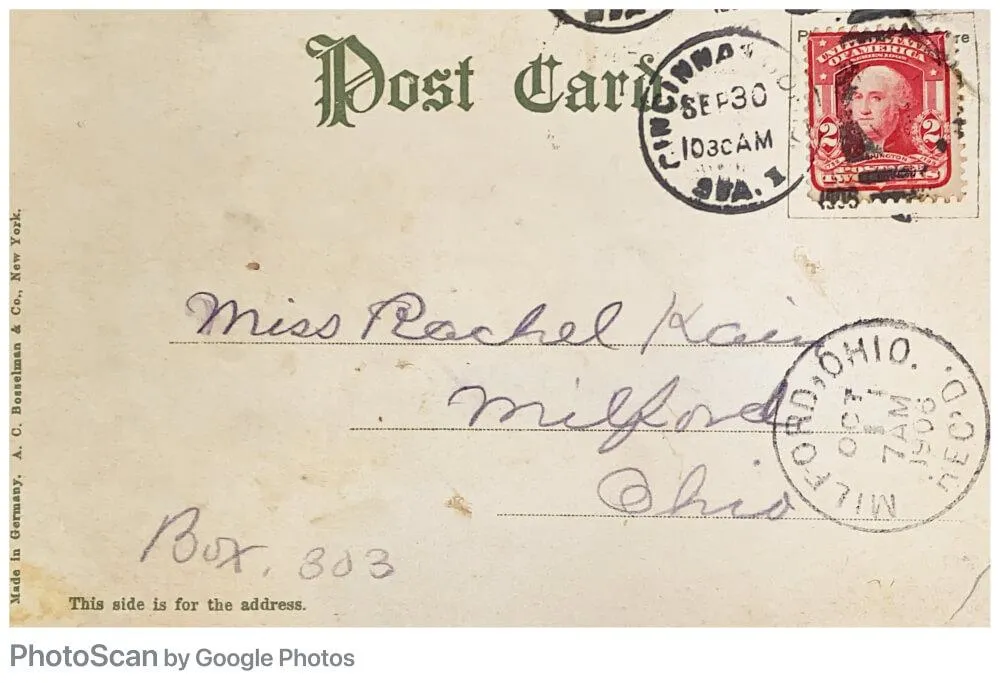 Post Card
CINCINNATI, O.
SEP 30
1030AM
STA. 1
UNITED STATES
OF AMERICA
SERIES 1902
2 2
WASHINGTON
TWO CENTS
1906
Miss Rachel Kain
Milford
Ohio
MILFORD, OHIO.
OCT
1
7AM
1906
REC'D.
Box. 303
This side is for the address.
Made in Germany. A. C. Bosselman & Co., New York.
PhotoScan by Google Photos